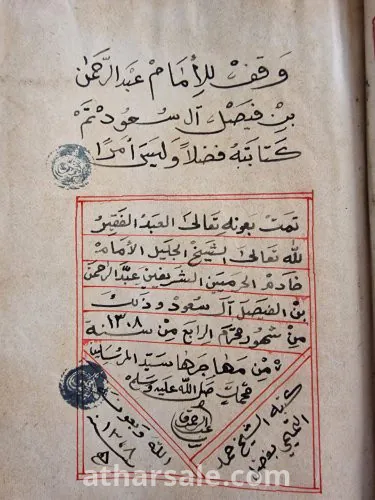 وقف للإمام عبدالرحمن
بن فيصل آل سعود تم
كتابته فضلاً وليس أمرًا
تمت بعونه تعالى العبد الفقير
لله تعالى الشيخ الجليل الأمام
خادم الحرمين الشريفين عبدالرحمن
بن الفيصل آل سعود وذلك
من شهور محرم الرابع من سنه ١٣٠٨
من مهاجرها سيد المرسلين
محمد صلى الله عليه وسلم
كتبه الشيخ حمد
التميمي بفضل
الله وبعونه
سنة ١٣٠٨
atharsale.com